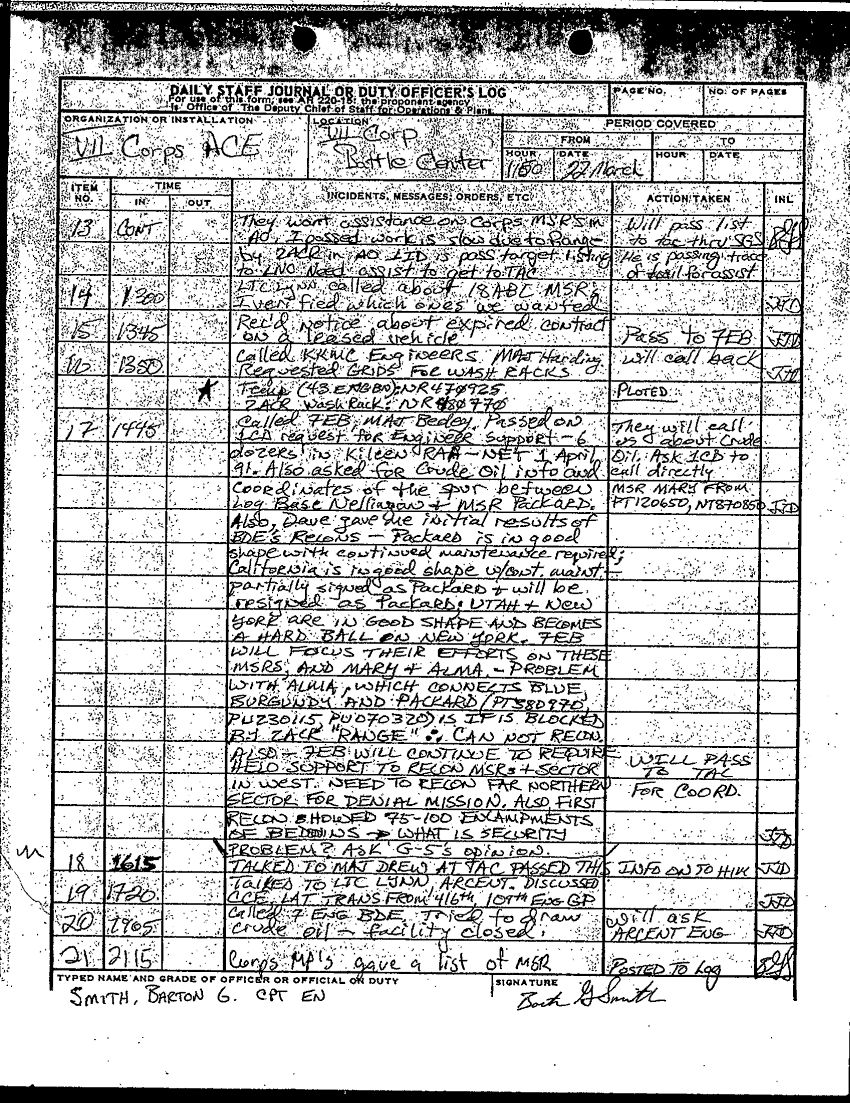 DAILY STAFF JOURNAL OR DUTY OFFICER'S LOG
For use of this form, see AR 220-15; the proponent agency
is Office of The Deputy Chief of Staff for Operations & Plans
PAGE NO.
NO. OF PAGES
ORGANIZATION OR INSTALLATION
VII Corps ACE
LOCATION
VII Corp
Battle Center
PERIOD COVERED
FROM
TO
HOUR
DATE
HOUR
DATE
22 March
ITEM NO.
TIME
IN
OUT
INCIDENTS, MESSAGES, ORDERS, ETC.
ACTION TAKEN
INL
13 CONT They want assistance on Corps MSRs in Will pass list
AO, I passed work is slow due to Range to tac thru SGS
by 2ACR in AO 1ID is pass target listing He is passing trace
to LNO Need assist to get to TAC of trail for assist
14 1300 LTC Lynn called about 18ABC MSR:
I verified which ones we wanted JJD
15 1345 Rec'd notice about expired contract
on a leased vehicle Pass to 7EB JJD
16 1350 Called KKMC Engineers. MAJ Harding will call back
Requested GRIDS FOR WASH RACKS JJD
(43 ENGBN): NR470925 PLOTED
2ACR Wash Rack: NR480770
17 1445 Called 7EB, MAJ Bedey, Passed on They will call
1CD request for Engineer support - 6 us about Crude
dozers in Kileen RAA - NET 1 April Oil. Ask 1CD to
91. Also asked for Crude Oil info and call directly
Coordinates of the spur between MSR MARY FROM
Log Base Nelligan + MSR Packard. PT120650, NT870850 JJD
Also, Dave gave me initial results of
BDE's Recons - Packard is in good
shape with continued maintenance required;
California is in good shape w/cont. maint. -
partially signed as Packard + will be
resigned as Packard; UTAH + New
YORK ARE IN GOOD SHAPE AND BECOMES
A HARD BALL ON NEW YORK. 7EB
WILL FOCUS THEIR EFFORTS ON THESE
MSRS, AND MARY + ALMA. - PROBLEM
WITH ALMA, WHICH CONNECTS BLUE,
BURGUNDY AND PACKARD (PT580970,
PU230115, PU070320) IS IT IS BLOCKED
BY 2ACR "RANGE" ∴ CAN NOT RECON.
ALSO - 7EB WILL CONTINUE TO REQUIRE
HELO SUPPORT TO RECON MSRs + SECTOR WILL PASS TO TAC
IN WEST. NEED TO RECON FAR NORTHERN FOR COORD.
SECTOR FOR DENIAL MISSION. ALSO FIRST
RECON SHOWED 75-100 ENCAMPMENTS
OF BEDOUINS → WHAT IS SECURITY JJD
PROBLEM? ASK G-5'S OPINION.
18 1615 TALKED TO MAJ DREW AT TAC PASSED THIS INFO ON TO HIM JJD
19 1720 TALKED TO LTC LYNN, ARCENT. DISCUSSED
CCE, LAT TRANS FROM 416th, 109th ENG GP JJD
20 1905 Called 7 ENG BDE, Tried to draw will ask
crude oil - facility closed. ARCENT ENG JJD
21 2115 Corps MP's gave a list of MSR POSTED TO Log BGS
TYPED NAME AND GRADE OF OFFICER OR OFFICIAL ON DUTY
SMITH, BARTON G. CPT EN
SIGNATURE
Barton G Smith